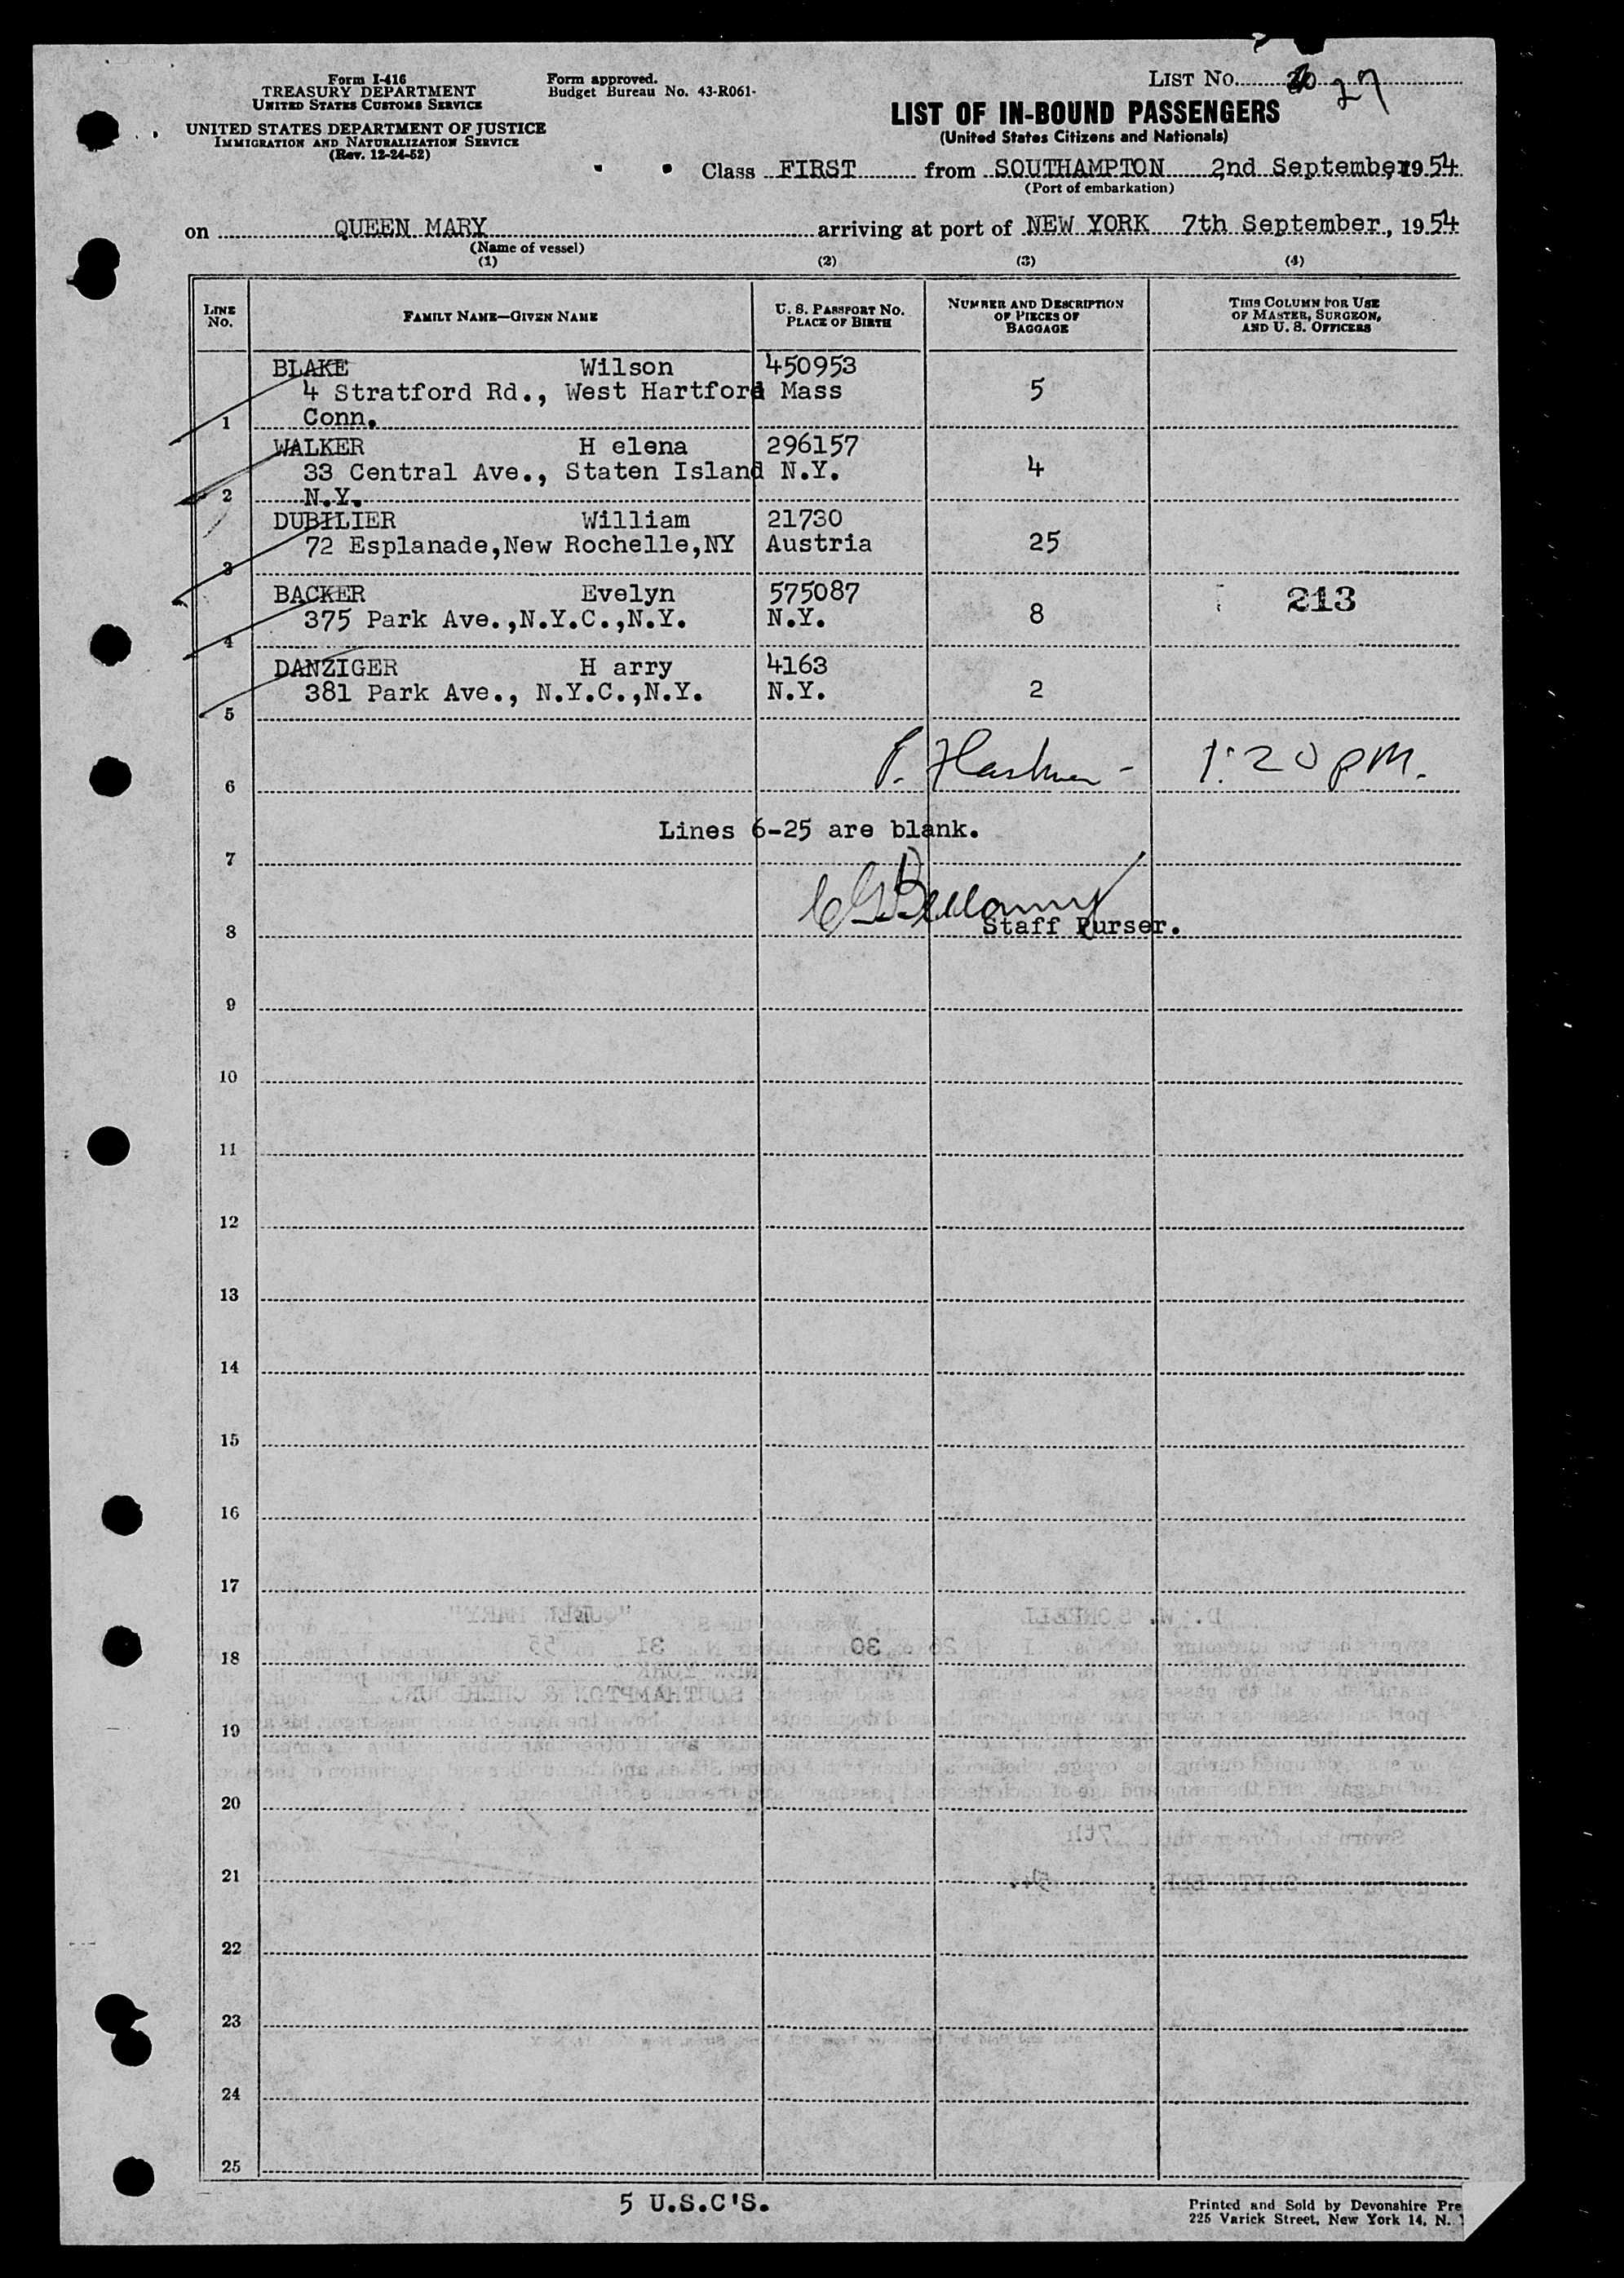 Form I-416
TREASURY DEPARTMENT
UNITED STATES CUSTOMS SERVICE
UNITED STATES DEPARTMENT OF JUSTICE
IMMIGRATION AND NATURALIZATION SERVICE
(Rev. 12-24-52)
Form approved.
Budget Bureau No. 43-R061-
LIST NO. 27
LIST OF IN-BOUND PASSENGERS
(United States Citizens and Nationals)
Class FIRST from SOUTHAMPTON 2nd September, 1954
(Port of embarkation)
on QUEEN MARY arriving at port of NEW YORK 7th September, 1954
(Name of vessel)
(1) (2) (3) (4)
LINE NO. FAMILY NAME—GIVEN NAME U. S. PASSPORT NO. PLACE OF BIRTH NUMBER AND DESCRIPTION OF PIECES OF BAGGAGE THIS COLUMN FOR USE OF MASTER, SURGEON, AND U. S. OFFICERS
BLAKE Wilson 450953
4 Stratford Rd., West Hartford Mass 5
1 Conn.
WALKER H elena 296157
33 Central Ave., Staten Island N.Y. 4
2 N.Y.
DUBILIER William 21730
72 Esplanade,New Rochelle,NY Austria 25
3
BACKER Evelyn 575087 213
375 Park Ave.,N.Y.C.,N.Y. N.Y. 8
4
DANZIGER H arry 4163
381 Park Ave., N.Y.C.,N.Y. N.Y. 2
5
1:20 pm.
6
Lines 6-25 are blank.
7
Staff Purser.
8
9
10
11
12
13
14
15
16
17
18
19
20
21
22
23
24
25
5 U.S.C'S.
Printed and Sold by Devonshire Pre
225 Varick Street, New York 14, N.